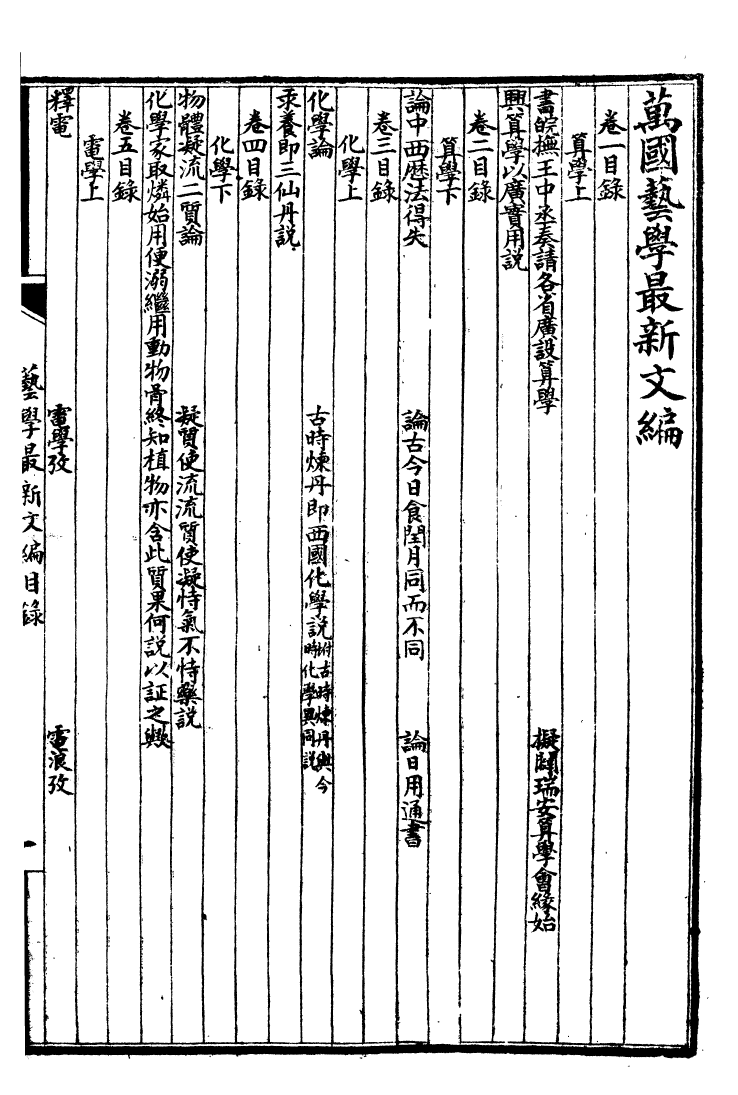 萬國藝學最新文編
卷一目錄
算學上
書皖撫王中丞奏請各省廣設算學　擬開瑞安算學會緣始
興算學以廣實用說
卷二目錄
算學下
論中西歷法得失　論古今日食閏月同而不同　論日用通書
卷三目錄
化學上
化學論　古時煉丹即西國化學說附古時煉丹與今時化學異同說
汞養即三仙丹說
卷四目錄
化學下
物體凝流二質論　凝質使流流質使凝恃氣不恃藥說
化學家取燐始用便溺繼用動物骨終知植物亦含此質果何說以証之歟
卷五目錄
電學上
釋電　電學攷　電浪攷
藝學最新文編目錄